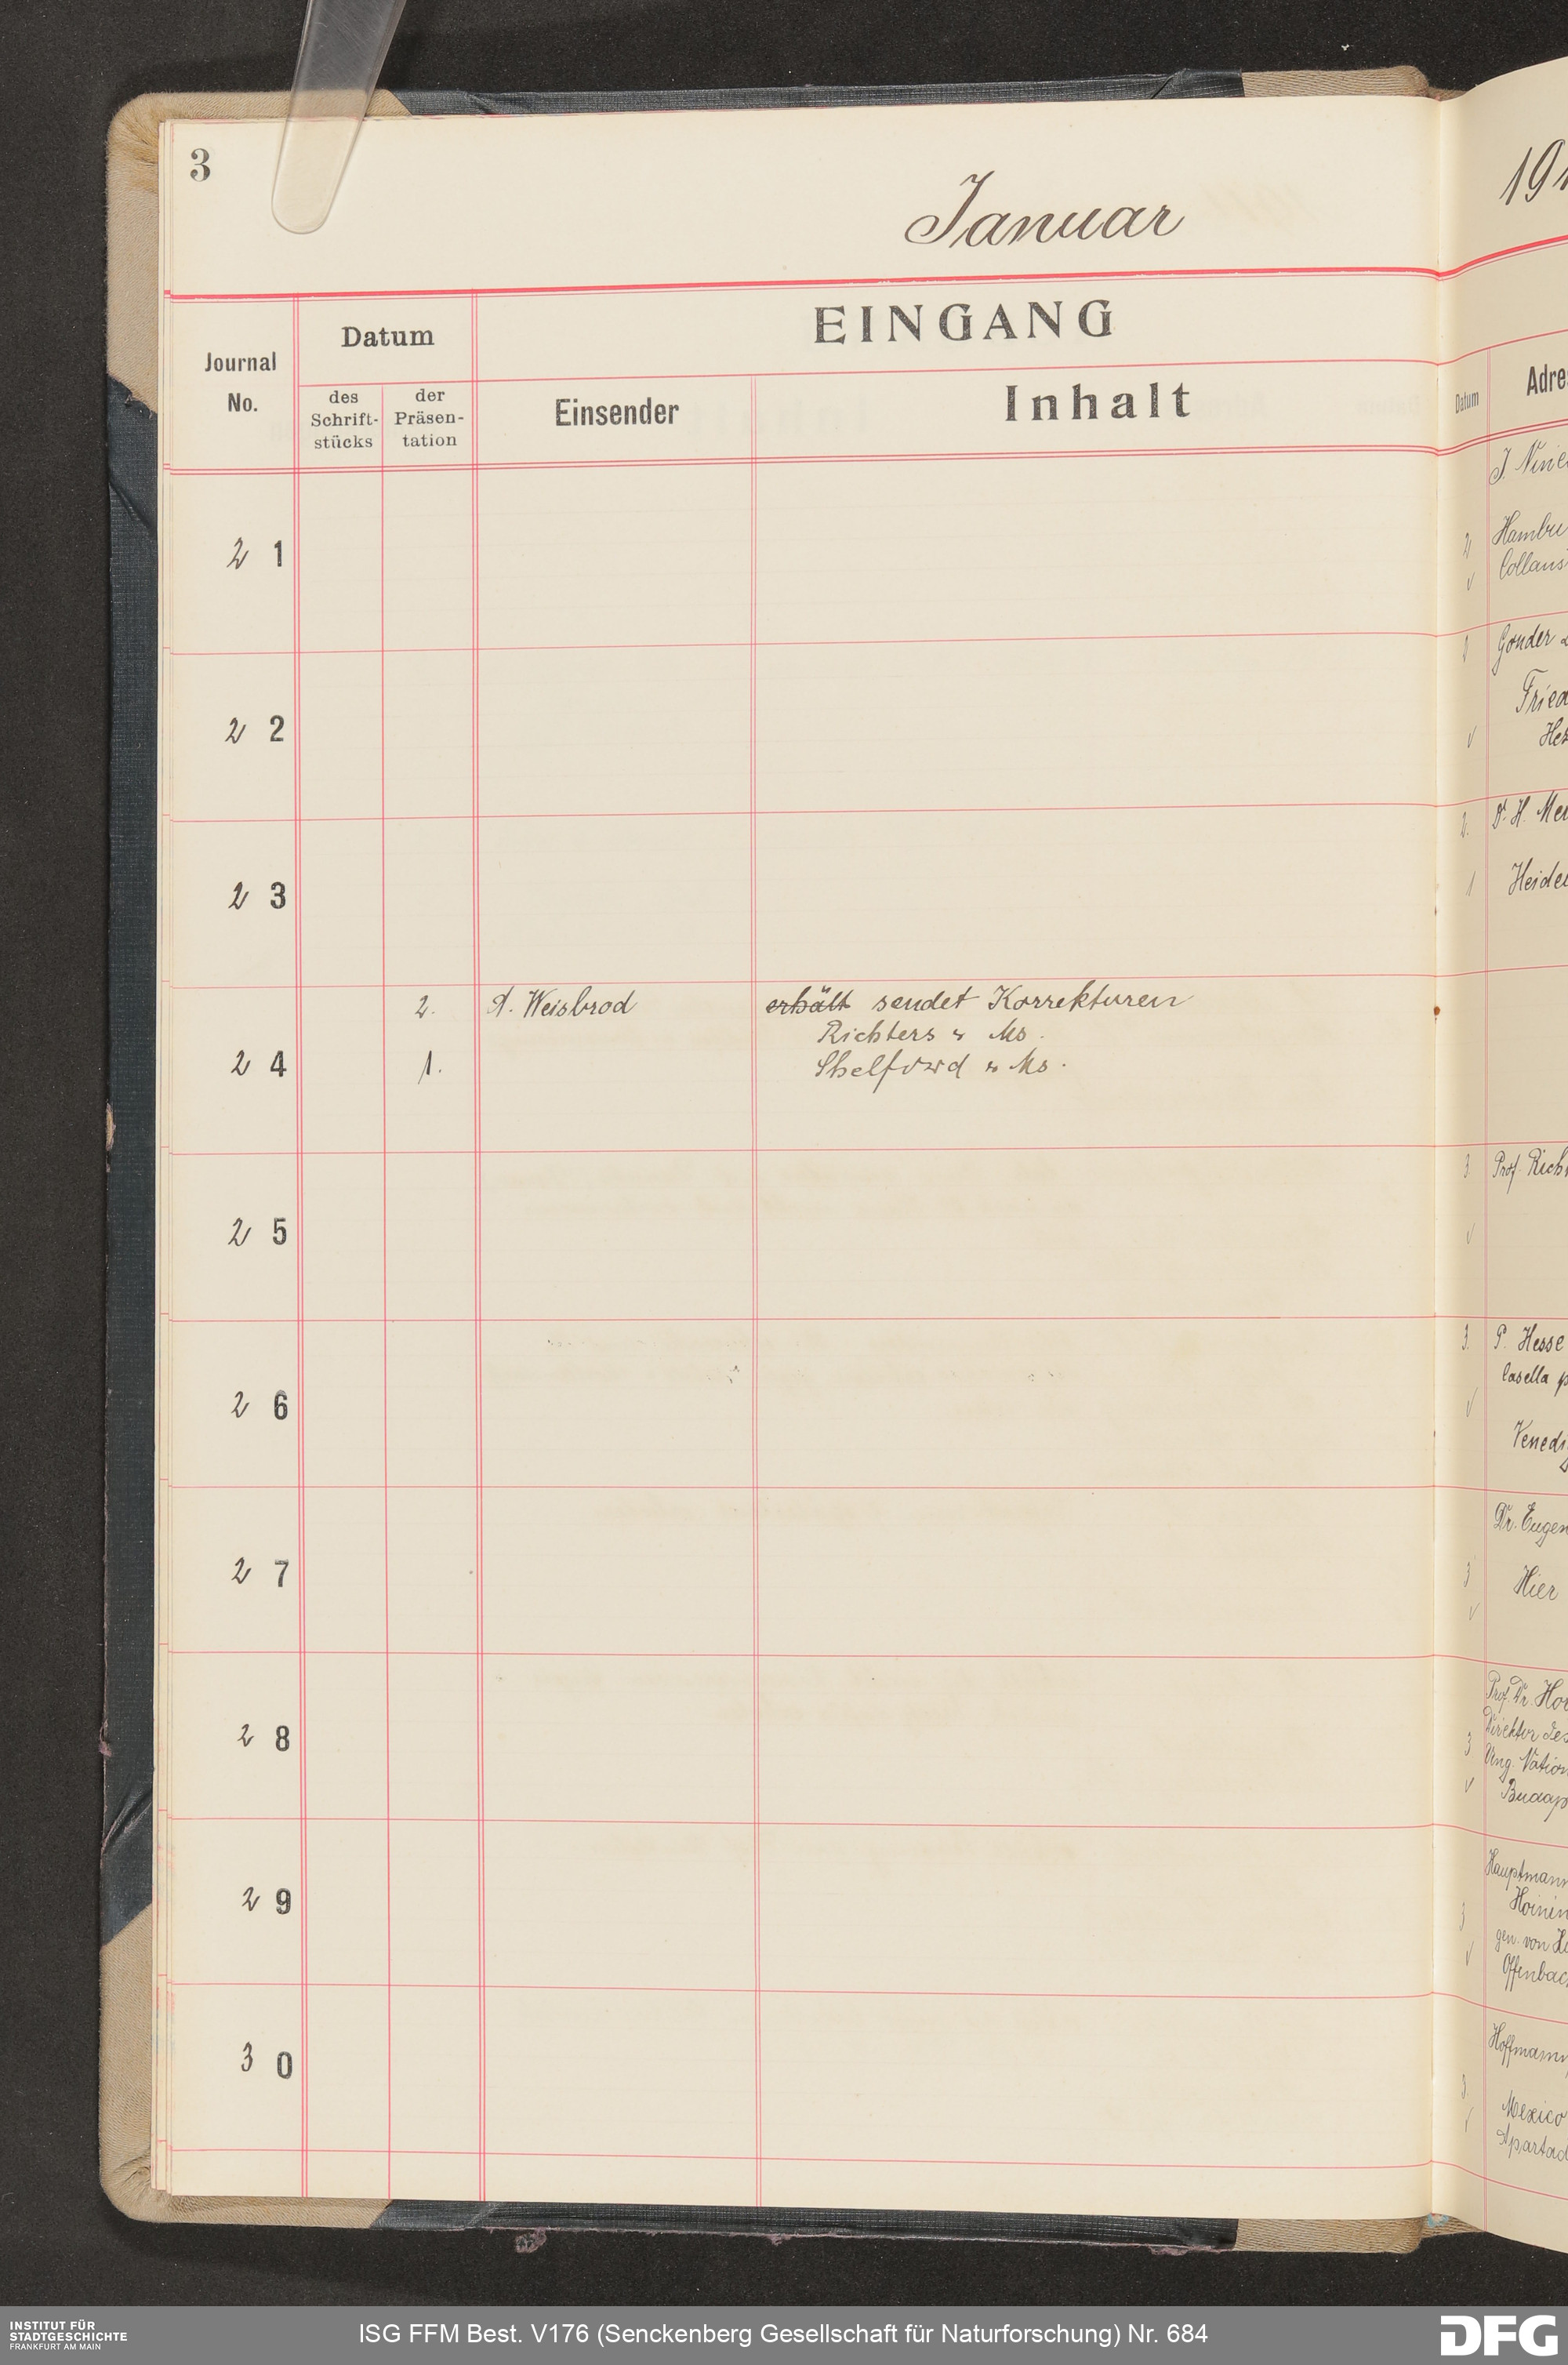 3
Januar
EINGANG
Journal No.
Datum
des Schrift-stücks
der Präsen-tation
Einsender
Inhalt
2 1
2 2
2 3
2 4
2.
1.
A. Weisbrod
erhält sendet Korrekturen
Richters u Ms.
Shelford u Ms.
2 5
2 6
2 7
2 8
2 9
3 0
191
Datum
Adre
2
Hambu
Gonder
Fried
Hes
2.
Dr. H. Mer
1
Heidel
3
Prof. Rich
3.
P. Hesse
Casella
Venedi
Dr. Eugen
3
Hier
Prof. Dr. Hor
Direktor des
3
Ung. Nation
Budap
Hauptmann
3
gen. von
Offenbac
Hoffmann
3
Mexico
Apartad
INSTITUT FÜR
STADTGESCHICHTE
FRANKFURT AM MAIN
ISG FFM Best. V176 (Senckenberg Gesellschaft für Naturforschung) Nr. 684
DFG